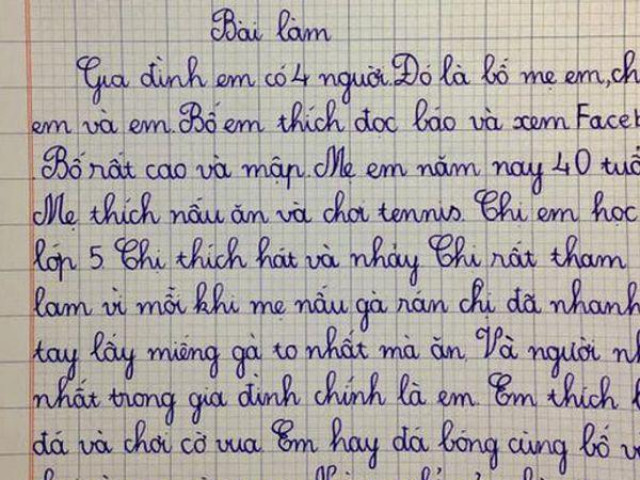 Bài làm
Gia đình em có 4 người. Đó là bố mẹ em,
em và em. Bố em thích đọc báo và xem
. Bố rất cao và mập. Mẹ em năm nay 40
Mẹ thích nấu ăn và chơi tennis. Chi em học
lớp 5. Chi thích hát và nhảy Chị rất tham
lam vì mỗi khi mẹ nấu gà rán chị đã nhanh
tay lấy miếng gà to nhất mà ăn. Và người
nhất trong gia đình chính là em Em thích
đá và chơi cờ vua Em hay đá bóng cùng bố